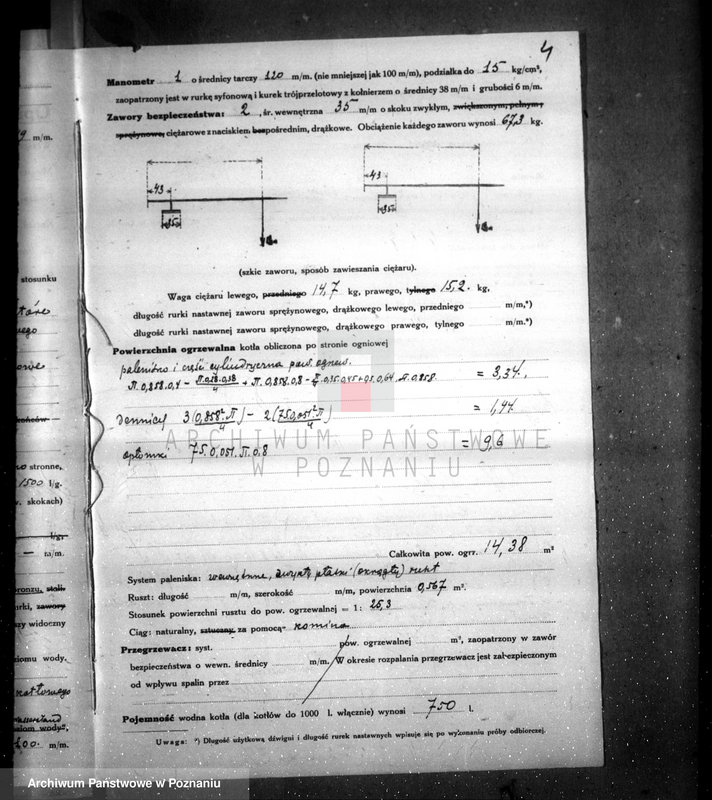 4
Manometr 1 o średnicy tarczy 120 m/m. (nie mniejszej jak 100 m/m), podziałka do 15 kg/cm²,
zaopatrzony jest w rurkę syfonową i kurek trójprzelotowy z kołnierzem o średnicy 38 m/m i grubości 6 m/m.
Zawory bezpieczeństwa: 2, śr. wewnętrzna 35 m/m o skoku zwykłym, zwiększonym, pełnym,
sprężynowe, ciężarowe z naciskiem bezpośrednim, drążkowe. Obciążenie każdego zaworu wynosi 67,3 kg.
43
43
35
35
(szkic zaworu, sposób zawieszania ciężaru).
Waga ciężaru lewego, przedniego 14,7 kg, prawego, tylnego 15,2. kg,
długość rurki nastawnej zaworu sprężynowego, drążkowego lewego, przedniego m/m,*)
długość rurki nastawnej zaworu sprężynowego, drążkowego prawego, tylnego m/m.*)
Powierzchnia ogrzewalna kotła obliczona po stronie ogniowej
palenisko i części cylindryczna pow. ogniow.
= 3,34.
dennicy = 1,44
płomki 75.0,051.π.0,8 = 9,6
ARCHIWUM PAŃSTWOWE
W POZNANIU
Całkowita pow. ogrz. 14,38 m²
System paleniska: wewnętrzne, zwykły płaski (okrągły) ruszt
Ruszt: długość m/m, szerokość m/m, powierzchnia 0,567 m².
Stosunek powierzchni rusztu do pow. ogrzewalnej = 1: 25,3
Ciąg: naturalny, sztuczny, za pomocą komina
Przegrzewacz: syst. pow. ogrzewalnej m², zaopatrzony w zawór
bezpieczeństwa o wewn. średnicy m/m. W okresie rozpalania przegrzewacz jest zabezpieczony
od wpływu spalin przez
Pojemność wodna kotła (dla kotłów do 1000 l. włącznie) wynosi 750 l.
Uwaga: *) Długość użytkową dźwigni i długość rurek nastawnych wpisuje się po wykonaniu próby odbiorczej.
m/m.
stosunku
stronne,
1500 l/g.
skokach)
l/g.
m/m.
bronzu, stali.
rurki, zawory
szy widoczny
ziomu wody.
iom wody,
m/m.
Archiwum Państwowe w Poznaniu